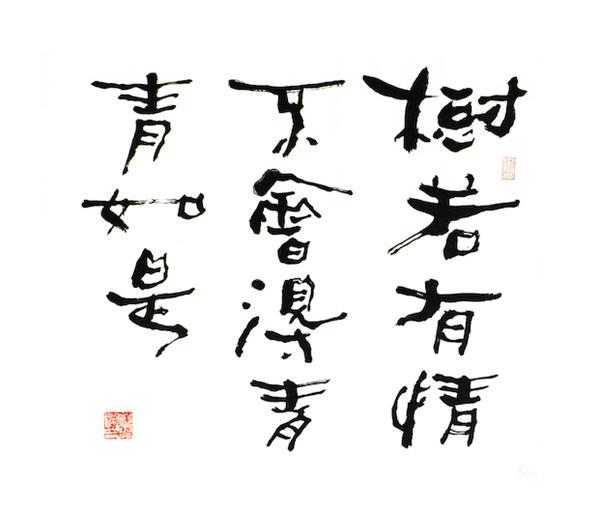 樹若有情
不會得青
青如是